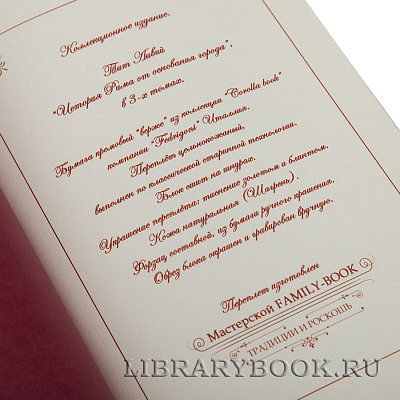 Коллекционное издание.
Тит Ливий
"История Рима от основания города",
в 3-х томах.
Бумага кремовый "верже" из коллекции "Corolla book"
компании "Fedrigoni" Италия.
Переплёт цельнокожаный,
выполнен по классической старинной технологии.
Блок сшит на шнурах.
Украшение переплёта: тиснение золотом и блинтом.
Кожа натуральная (Шагрень).
Форзац составной, из бумаги ручного крашения.
Обрез блока окрашен и гравирован вручную.
Переплет изготовлен
Мастерской FAMILY-BOOK
ТРАДИЦИИ И РОСКОШЬ
LIBRARYBOOK.RU